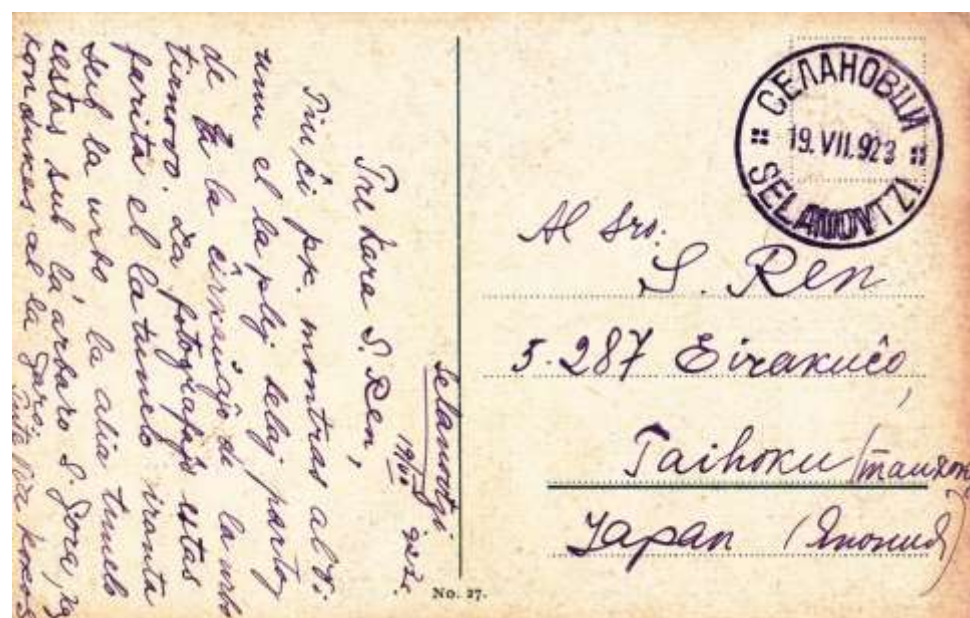 СЕЛАНОВЦИ
19. VII. 923
SELANOVTZI
Al Sro.
S. Ren
5-287 Eirakuĉo,
Taihoku
Japan (Япония)
No. 27.
Selanovtzi
19/VII
Tre kara S. Ren,
Tiu ĉi pk. montras al Vi
unu el la plej belaj partoj
de la ĉirkaŭaĵo de la urbo
Tirnovo. La fotografaĵo estas
farita el la tunelo iranta
sub la urbo, la alia tunelo
estas sub la arbaro S. gora, kaj
kondukas al la garo.